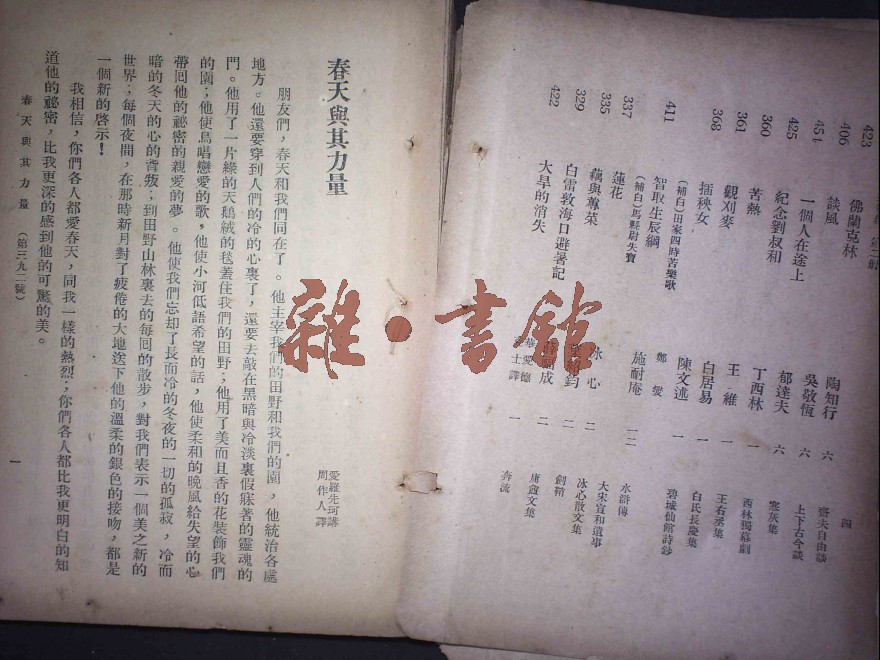 第二冊 四
423 佛蘭克林 陶知行 六 齋夫自由談
406 談風 吳敬恆 六 上下古今談
454 一個人在途上 郁達夫 六 寒灰集
425 紀念劉叔和 丁西林 一 西林獨幕劇
360 苦熱 王維 一 王右丞集
361 觀刈麥 白居易 一 白氏長慶集
368 插秧女 陳文述 一 碧城仙館詩鈔
(補白)田家四時苦樂歌 鄭燮
411 智取生辰綱 施耐庵 一二 水滸傳
(補白)馬縣尉失寶 大宋宣和遺事
337 蓮花 冰心 二 冰心散文集
335 藕與蓴菜 鈞 二 劍鞘
329 白雷致海口避暑記 福成 二 庸盦文集
422 大旱的消失 華愛德 士譯 一 奔流
春天與其力量
愛羅先珂講
周作人譯
朋友們，春天和我們同在了。他主宰我們的田野和我們的園，他統治各處
地方。他還要穿到人們的冷的心裏了，還要去敲在黑暗與冷淡裏假寐著的靈魂的
門。他用了一片綠的天鵝絨的毯蓋住我們的田野；他用了美而且香的花裝飾我們
的園；他使鳥唱戀愛的歌，他使小河低語希望的話，他使柔和的晚風給失望的心
帶回他的祕密的親愛的夢。他使我們忘却了長而冷的冬夜的一切的孤寂，冷而
暗的冬天的心的背叛；到田野山林裏去的每回的散步，對我們表示一個美之新的
世界；每個夜間，在那時新月對了疲倦的大地送下他的溫柔的銀色的接吻，都是
一個新的啓示！
我相信，你們各人都愛春天，同我一樣的熱烈；你們各人都比我更明白的知
道他的祕密，比我更深的感到他的可驚的美。
春天與其力量 (第三九二號) 一
雜·書館